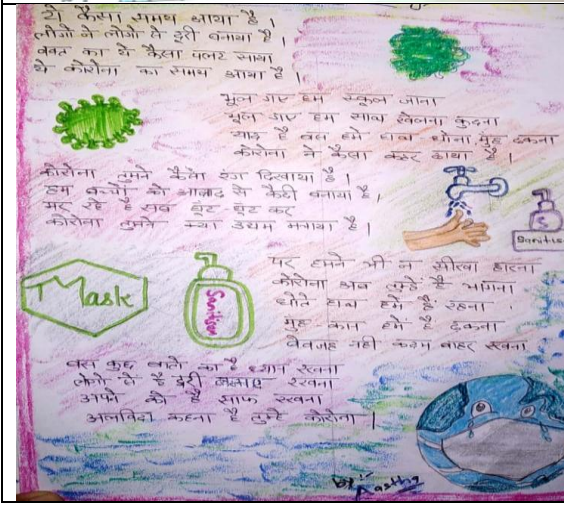 ये कैसा समय आया है |
लोगों ने लोगों से दूरी बनाया है |
वक्त का ये कैसा पलट साया
ये कोरोना का समय आया है |
भूल गए हम स्कूल जाना
भूल गए हम साथ खेलना कुदना
याद है बस हमे हाथ धोना मुंह ढकना
कोरोना ने कैसा कहर ढाया है |
कोरोना तुमने कैसा रंग दिखाया है |
हम बच्चों को आजाद से कैदी बनाया है |
मर रहे है सब घुंट घुंट कर
कोरोना तुमने क्या उधम मचाया है |
Sanitise
पर हमने भी न सीखा हारना
कोरोना अब तुम्हे है भागना
धोते हाथ हमे है रहना
मुंह कान हमे है ढकना
बेवजह नही कदम बाहर रखना
Mask
Sanitiser
बस कुछ बातो का है ध्यान रखना
लोगो से है दूरी बनाए रखना
अपने को है साफ रखना
अलविदा कहना है तुम्हे कोरोना |
by:- Aastha